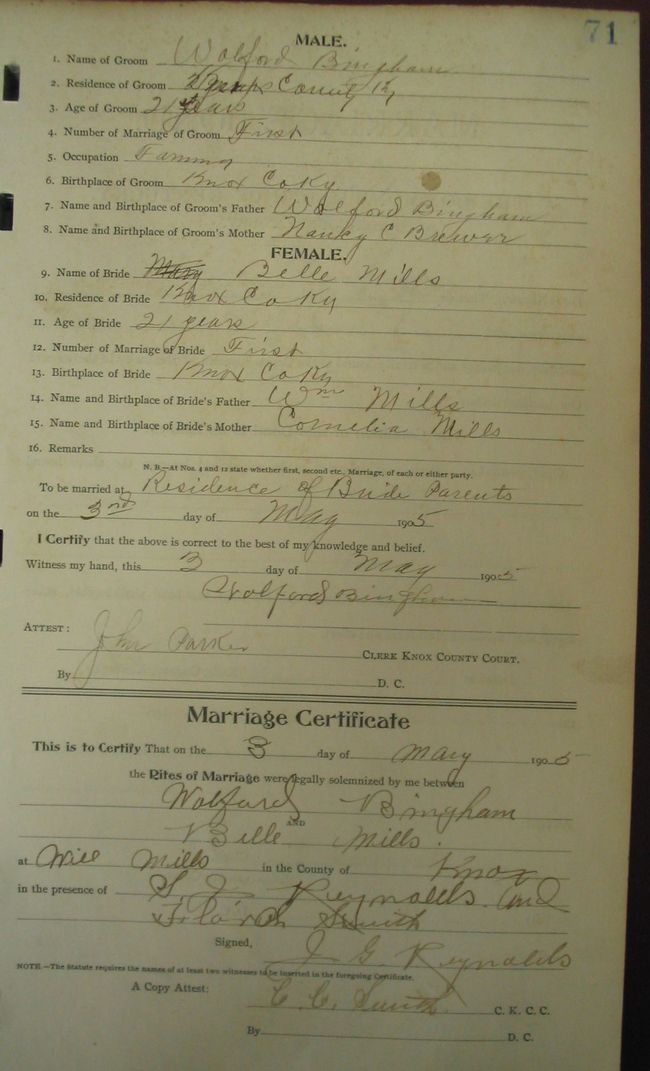 71
MALE.
1. Name of Groom Wolford Bingham
2. Residence of Groom Knox County Ky
3. Age of Groom 21 years
4. Number of Marriage of Groom First
5. Occupation Farming
6. Birthplace of Groom Knox Co Ky.
7. Name and Birthplace of Groom's Father Wolford Bingham
8. Name and Birthplace of Groom's Mother Nancy C Brewer
FEMALE.
9. Name of Bride Mary Belle Mills
10. Residence of Bride Knox Co Ky
11. Age of Bride 21 years
12. Number of Marriage of Bride First
13. Birthplace of Bride Knox Co Ky
14. Name and Birthplace of Bride's Father Wm Mills
15. Name and Birthplace of Bride's Mother Cornelia Mills
16. Remarks
N. B.—At Nos. 4 and 12 state whether first, second etc., Marriage, of each or either party.
To be married at Residence of Bride Parents
on the 3rd day of May 1905
I Certify that the above is correct to the best of my knowledge and belief.
Witness my hand, this 3 day of May 1905
Wolford Bingham
ATTEST:
John Parker CLERK KNOX COUNTY COURT.
By D. C.
Marriage Certificate
This is to Certify That on the 3 day of May 1905
the Rites of Marriage were legally solemnized by me between
Wolford Bingham
AND
Belle Mills.
at Will Mills in the County of Knox
in the presence of Reynolds and
Smith
Signed, J. G. Reynolds
NOTE.—The Statute requires the names of at least two witnesses to be inserted in the foregoing Certificate.
A Copy Attest: C. C. Smith C. K. C. C.
By D. C.